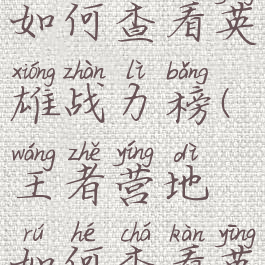 如何查看英
xióng zhàn lì bǎng
雄战力榜(
wáng zhě yíng dì
王者营地
rú hé chá kàn yīng
如何查看英